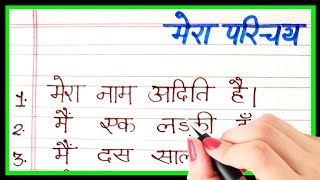 मेरा परिचय
1. मेरा नाम अदिति है।
2. मैं एक लड़की हूँ
3. मैं दस साल